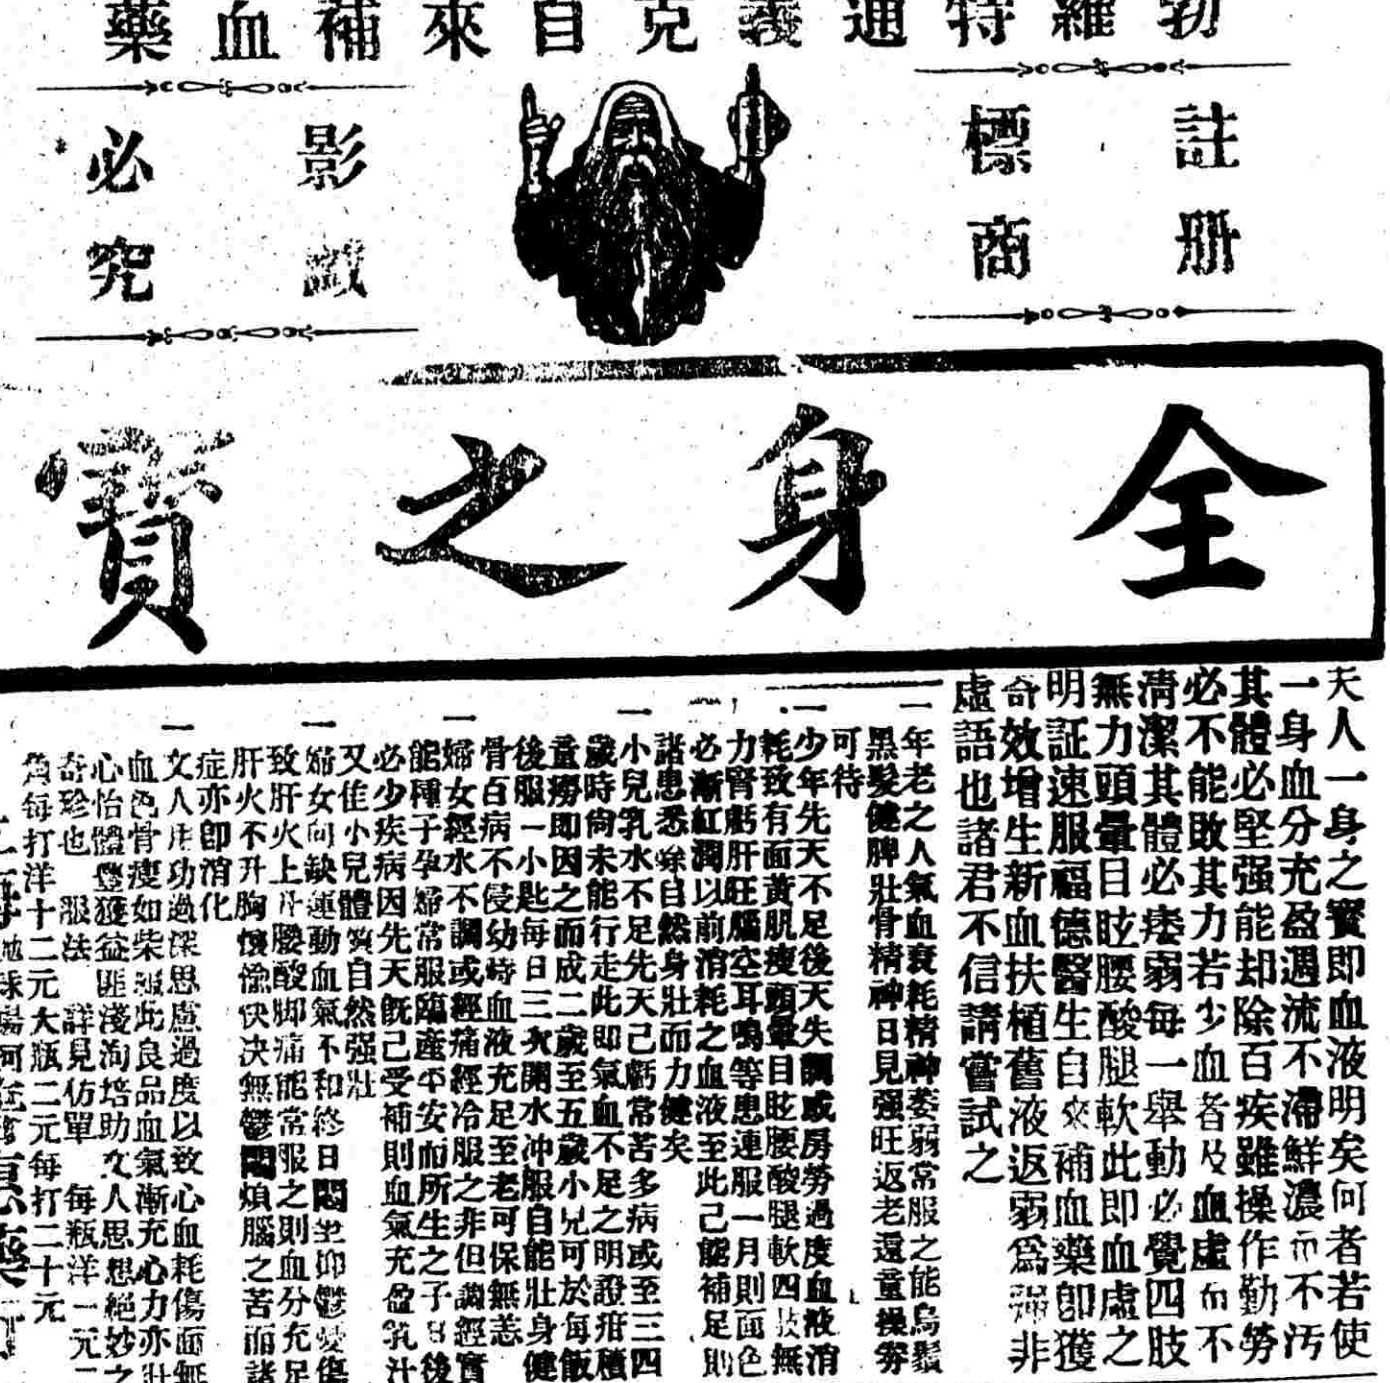 勃羅特通義克自來補血藥
註册
商標
影戤
必究
全身之寶
夫人一身之寶即血液明矣何者若使
一身血分充盈遇流不滯鮮濃而不汚
其體必堅强能却除百疾雖操作勤勞
必不能敗其力若少血者及血虛而不
淸潔其體必痿弱每一舉動必覺四肢
無力頭暈目眩腰酸腿軟此即血虛之
明証速服福德醫生自來補血藥卽獲
奇效增生新血扶植舊液返弱爲强非
虛語也諸君不信請嘗試之
一年老之人氣血衰耗精神委弱常服之能烏鬚
黑髮健脾壯骨精神日見强旺返老還童操劵
可待
一少年先天不足後天失調或房勞過度血液消
耗致有面黃肌瘦頭暈目眩腰酸腿軟四肢無
力腎虧肝旺腦空耳鳴等患連服一月則面色
必漸紅潤以前消耗之血液至此己能補足則
諸患悉除自然身壯而力健矣
一小兒乳水不足先天己虧常苦多病或至三四
歲時尙未能行走此即氣血不足之明證疳積
童癆即因之而成二歲至五歲小兒可於每飯
後服一小匙每日三次開水冲服自能壯身健
骨百病不侵幼時血液充足至老可保無恙
一婦女經水不調或經痛經冷服之非但調經實
能種子孕婦常服臨產平安而所生之子日後
必少疾病因先天旣己受補則血氣充盈乳汁
又佳小兒體質自然强壯
一婦女向缺運動血氣不和終日悶坐抑鬱憂傷
致肝火上升腰酸脚痛能常服之則血分充足
肝火不升胸懷愉快决無鬱悶煩腦之苦而諸
症亦卽消化
一文人用功過深思慮過度以致心血耗傷面無
血色骨瘦如柴服此良品血氣漸充心力亦壯
心怡體豐獲益匪淺洵培助文人思想絕妙之
奇珍也 服法 詳見仿單 每瓶洋一元二
角每打洋十二元大瓶二元每打二十元